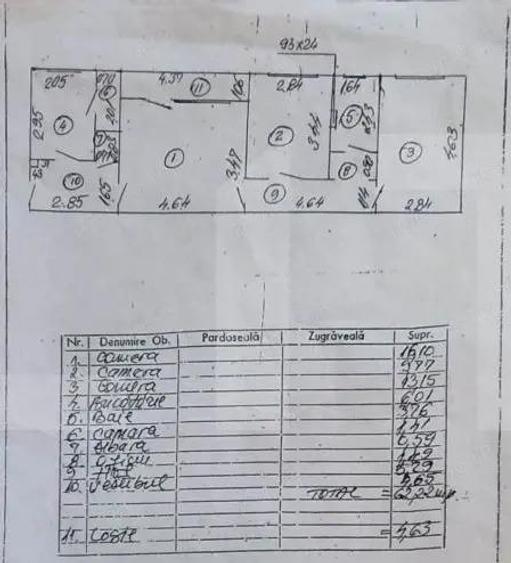 93x24
205
070
4.37
11
106
2.84
164
6
295
4
5
2
3.44
3
463
7
1
3.47
8
080
43
10
165
9
2.85
4.64
4.64
2.84
Nr. Denumire Ob. Pardoseală Zugrăveală Supr.
1. Camera 16,10
2. Camera 9,77
3. Camera 13,15
4. Bucătărie 6,01
5. Baie 3,76
6. Camara 1,41
7. Debara 0,59
8.
9. Hol 5,29
10. Vestibul
TOTAL = 62,22 mp.
11. = 4,63